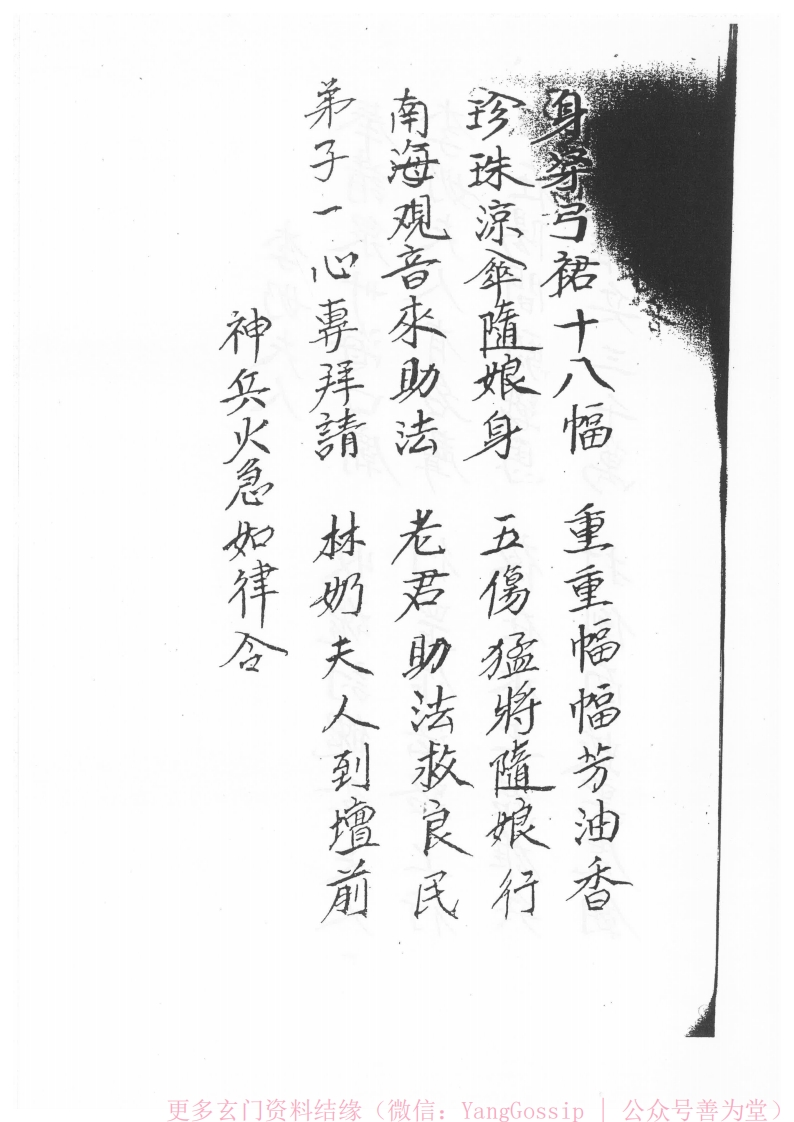 身穿弓裙十八幅　重重幅幅芳油香
珍珠涼傘隨娘身　五傷猛將隨娘行
南海观音來助法　老君助法救良民
弟子一心專拜請　林奶夫人到壇前
神兵火急如律令
更多玄门资料结缘（微信：YangGossip | 公众号善为堂）